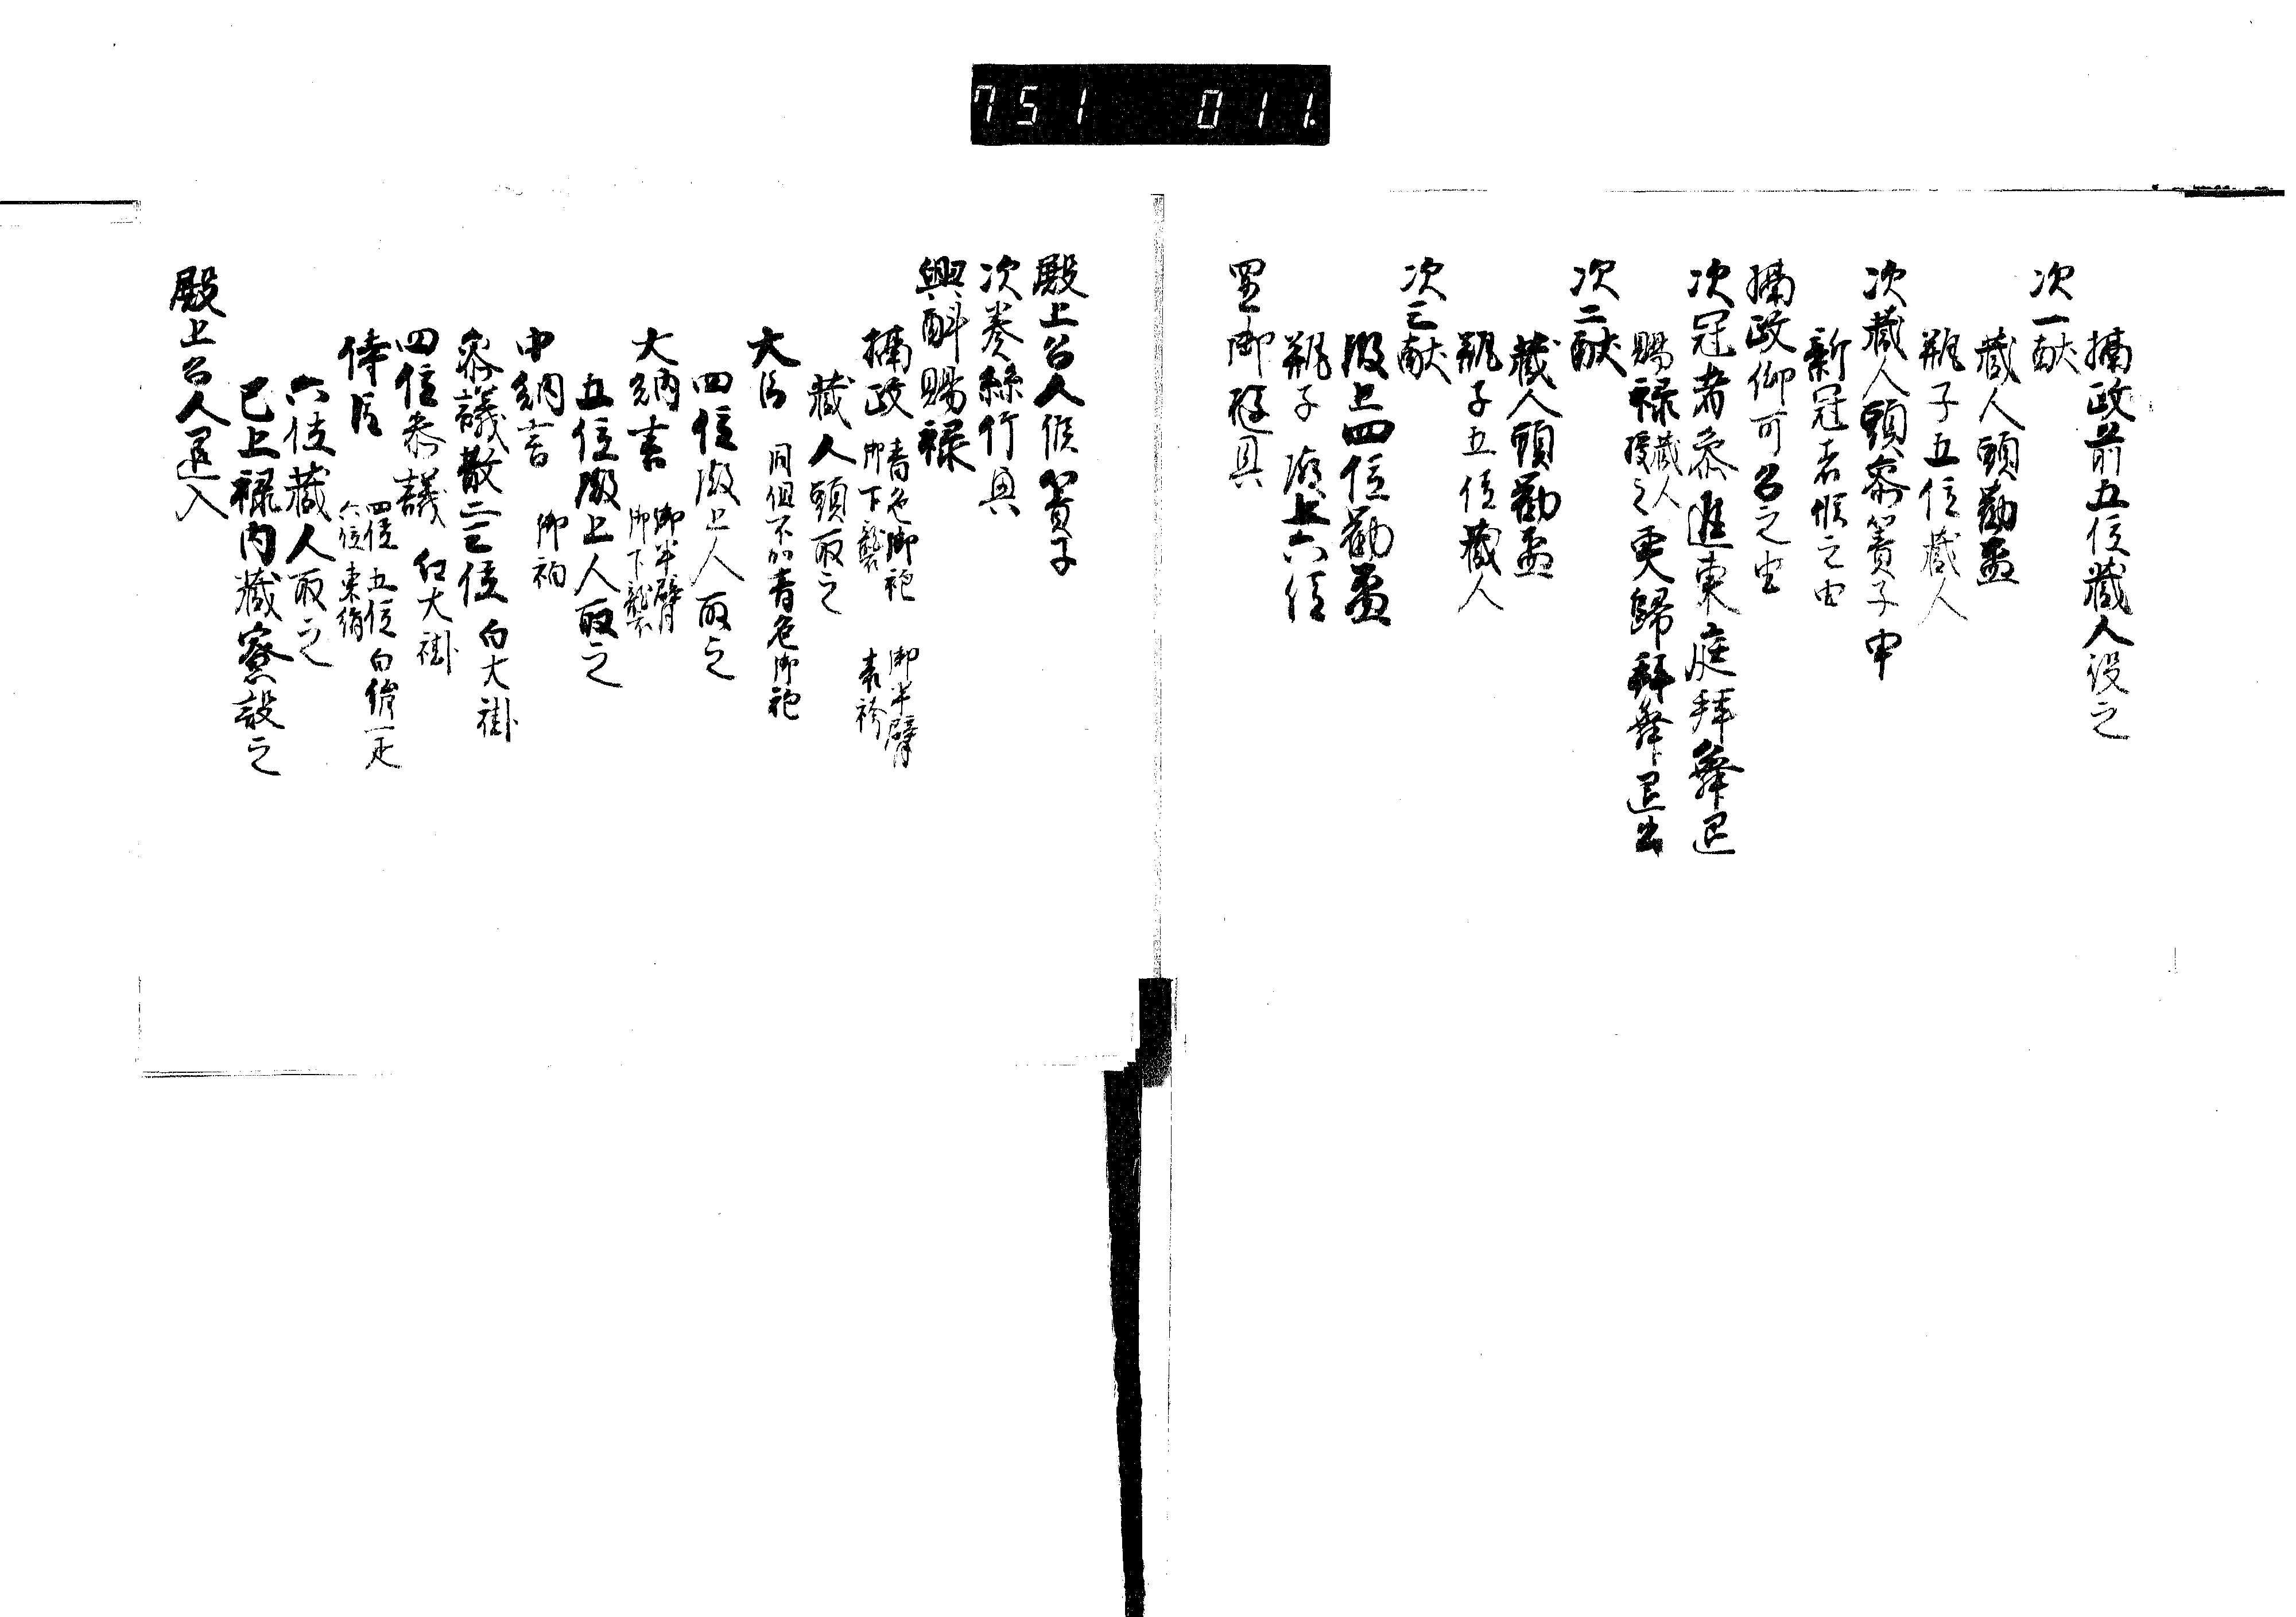 751 011
摂政前五位蔵人役之
次一献
蔵人頭勧盃
瓶子五位蔵人
次蔵人頭参簀子申
新冠者候之由
摂政仰可召之由
次冠者参進東庭拝舞退
賜禄蔵人伝之更帰拝舞退出
次二献
蔵人頭勧盃
瓶子五位蔵人
次三献
殿上四位勧盃
瓶子殿上六位
置御遊具
殿上召人候簀子
次奏絲竹興
興酣賜禄
摂政 青色御袍 御半臂
御下襲 表袴
蔵人頭取之
大臣 同但不加青色御袍
四位殿上人取之
大納言 御半臂
御下襲
五位殿上人取之
中納言 御衵
参議散二三位 白大褂
四位参議 紅大褂
侍臣 四位五位白絹一疋
六位東絹
六位蔵人取之
已上禄内蔵寮設之
殿上召人退入